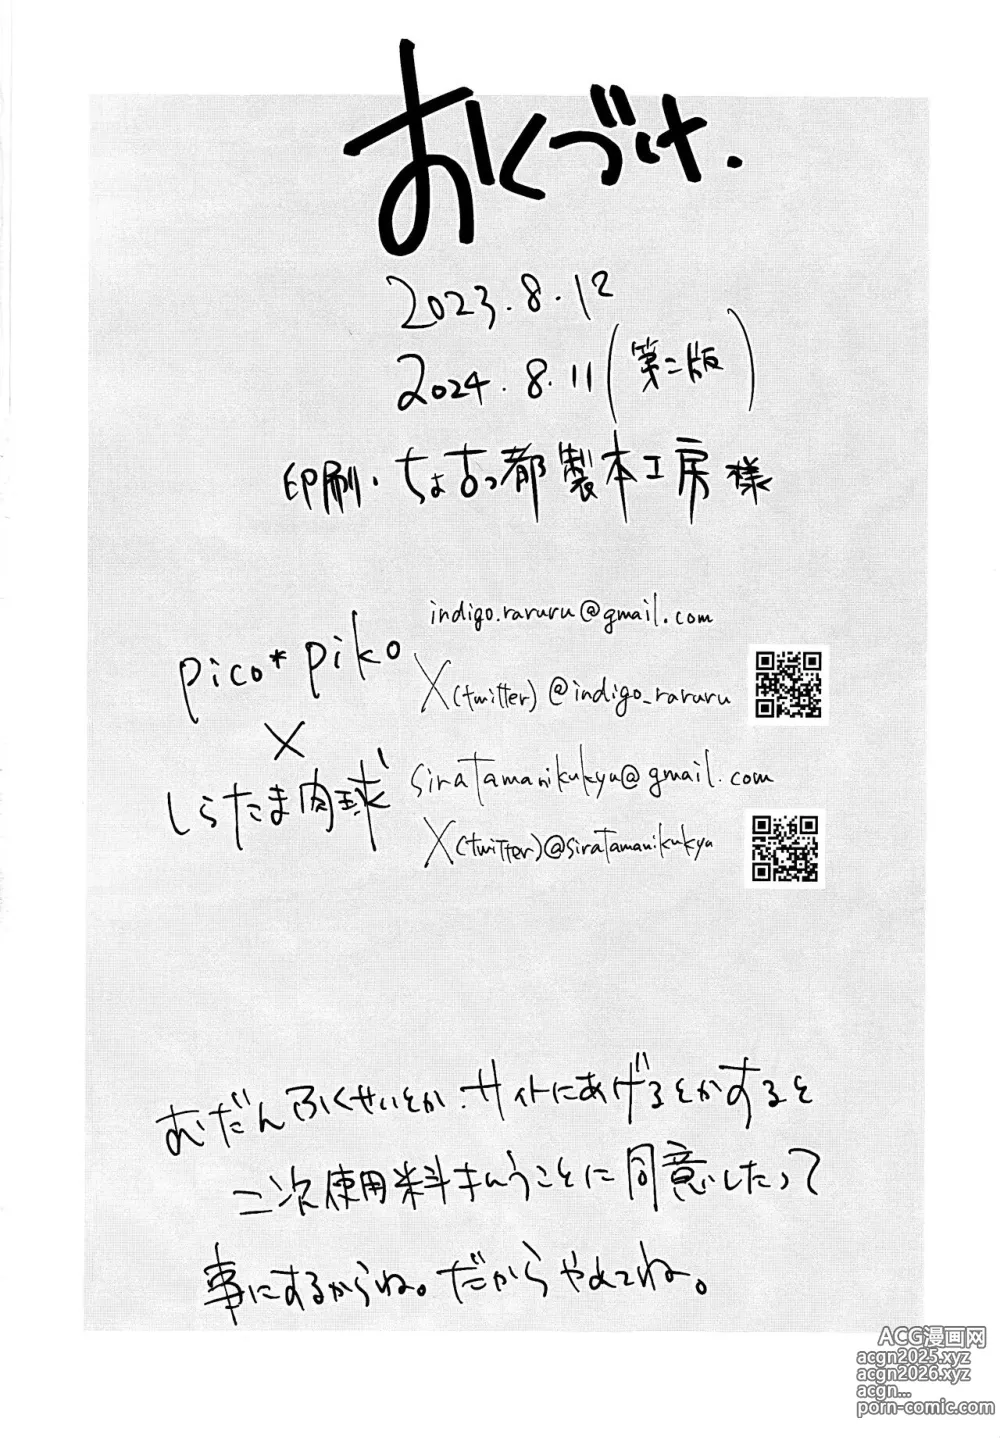 おくづけ.
2023.8.12
2024.8.11(第二版)
印刷・ちょ古っ都製本工房様
pico*piko
indigo.raruru@gmail.com
X(twitter)@indigo_raruru
×
しらたま肉球
siratamanikukyu@gmail.com
X(twitter)@siratamanikukyu
むだんふくせいとか.サイトにあげるとかすると
二次使用料はらうことに同意したって
事にするからね。だからやめてね。
ACG漫画网
acgn2025.xyz
acgn2026.xyz
acgn...
porn-comic.com